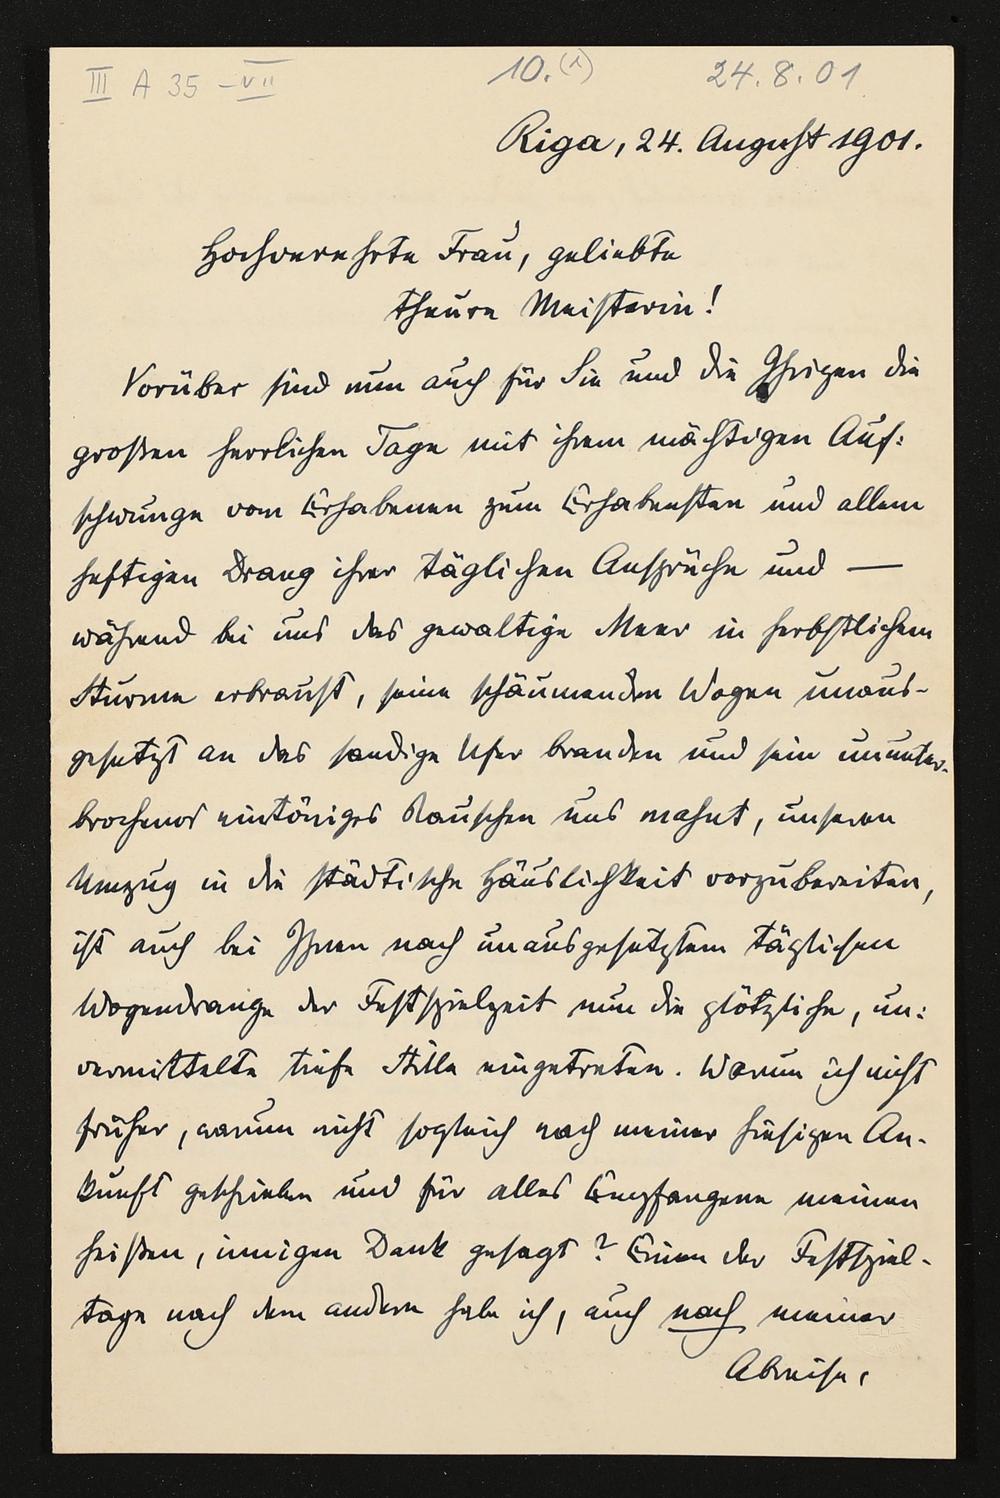 III A 35 – VII
10. (1)
24. 8. 01
Riga, 24. August 1901.
Hochverehrte Frau, geliebte
theure Meisterin!
Vorüber sind nun auch für Sie und die Ihrigen die
großen herrlichen Tage mit ihrem mächtigen Auf:
schwunge vom Erhabenen zum Erhabensten und allem
heftigen Drang ihrer täglichen Ansprüche und —
während bei uns das gewaltige Meer in herbstlichem
Sturme erbraust, seine schäumenden Wogen unaus-
gesetzt an das sandige Ufer branden und sein ununter-
brochenes eintöniges Rauschen uns mahnt, unseren
Umzug in die städtische Häuslichkeit vorzubereiten,
ist auch bei Ihnen nach unausgesetztem täglichen
Wogendrange der Festspielzeit nun die plötzliche, un:
vermittelte tiefe Stille eingetreten. Warum ich nicht
früher, warum nicht sogleich nach meiner hiesigen An-
kunft geschrieben und für alles Empfangene meinen
heißen, innigen Dank gesagt? Einen der Festspiel-
tage nach dem andern habe ich, auch nach meiner
Abreise,